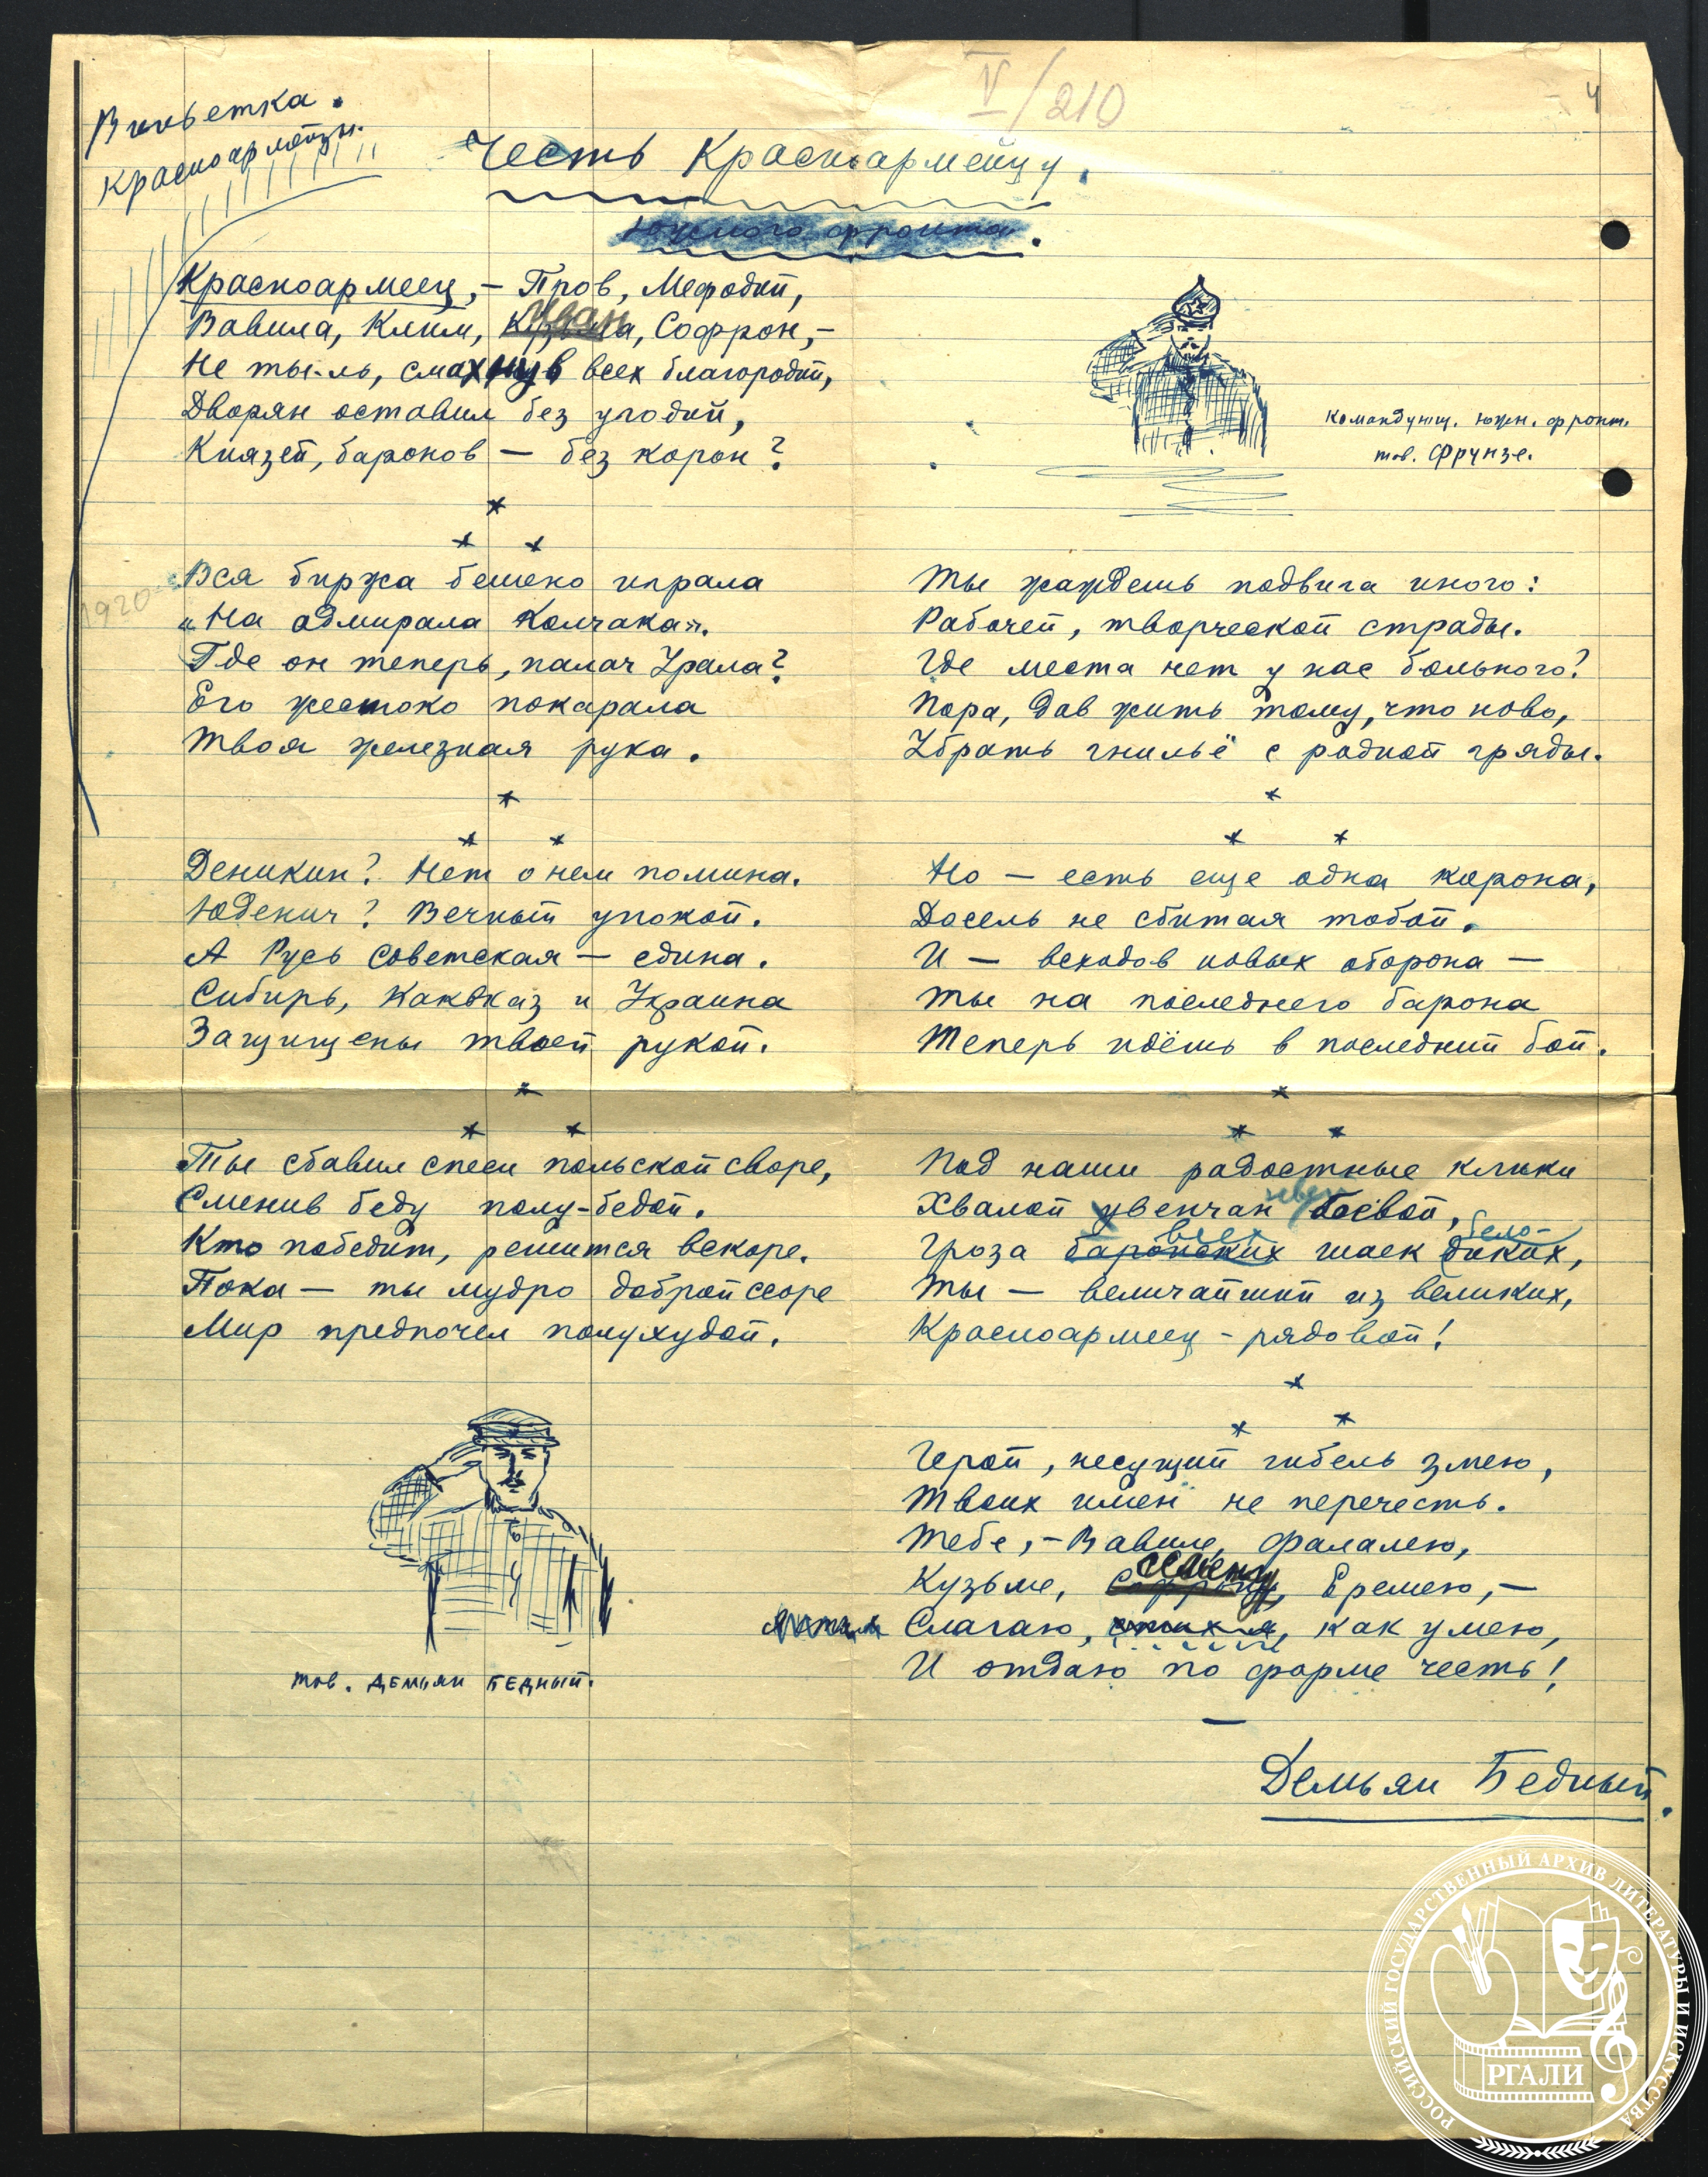 Виньетка.
красноармейцы.
V/210
4
Честь Красноармейцу.
Южного фронта.
Красноармеец, – Пров, Мефодий,
Вавила, Клим, Иван, Софрон, –
Не ты-ль, смахнув всех благородий,
Дворян оставил без угодий,
Князей, баронов — без корон?
*
* *
Вся биржа бешено играла
„На адмирала Колчака".
Где он теперь, палач Урала?
Его жестоко покарала
Твоя железная рука.
1920
*
* *
Деникин? Нет о нем помина.
Юденич? Вечный упокой.
А Русь советская — едина.
Сибирь, Кавказ и Украина
Защищены твоей рукой.
*
* *
Ты сбавил спеси польской своре,
Сменив беду полу-бедой.
Кто победит, решится вскоре.
Пока — ты мудро доброй ссоре
Мир предпочел полухудой.
тов. ДЕМЬЯН БЕДНЫЙ.
Командующ. южн. фронт.
тов. Фрунзе.
Ты жаждешь подвига иного:
Рабочей, творческой страды.
Где места нет у нас больного?
Пора, дав жить тому, что ново,
Убрать гнильё с родной гряды.
*
* *
Но — есть еще одна корона,
Досель не сбитая тобой.
И — всходов новых оборона —
Ты на последнего барона
Теперь идёшь в последний бой.
*
* *
Под наши радостные клики
Хвалой увенчан боевой,
всех бело-
Гроза баронских шаек диких,
Ты — величайший из великих,
Красноармеец – рядовой!
*
* *
Герой, несущий гибель змею,
Твоих имен не перечесть.
Тебе, – Вавиле, Фалалею,
Кузьме, Семену, Еремею, –
Слагаю, стих я, как умею,
И отдаю по форме честь!
Демьян Бедный.
РОССИЙСКИЙ ГОСУДАРСТВЕННЫЙ АРХИВ ЛИТЕРАТУРЫ И ИСКУССТВА
РГАЛИ